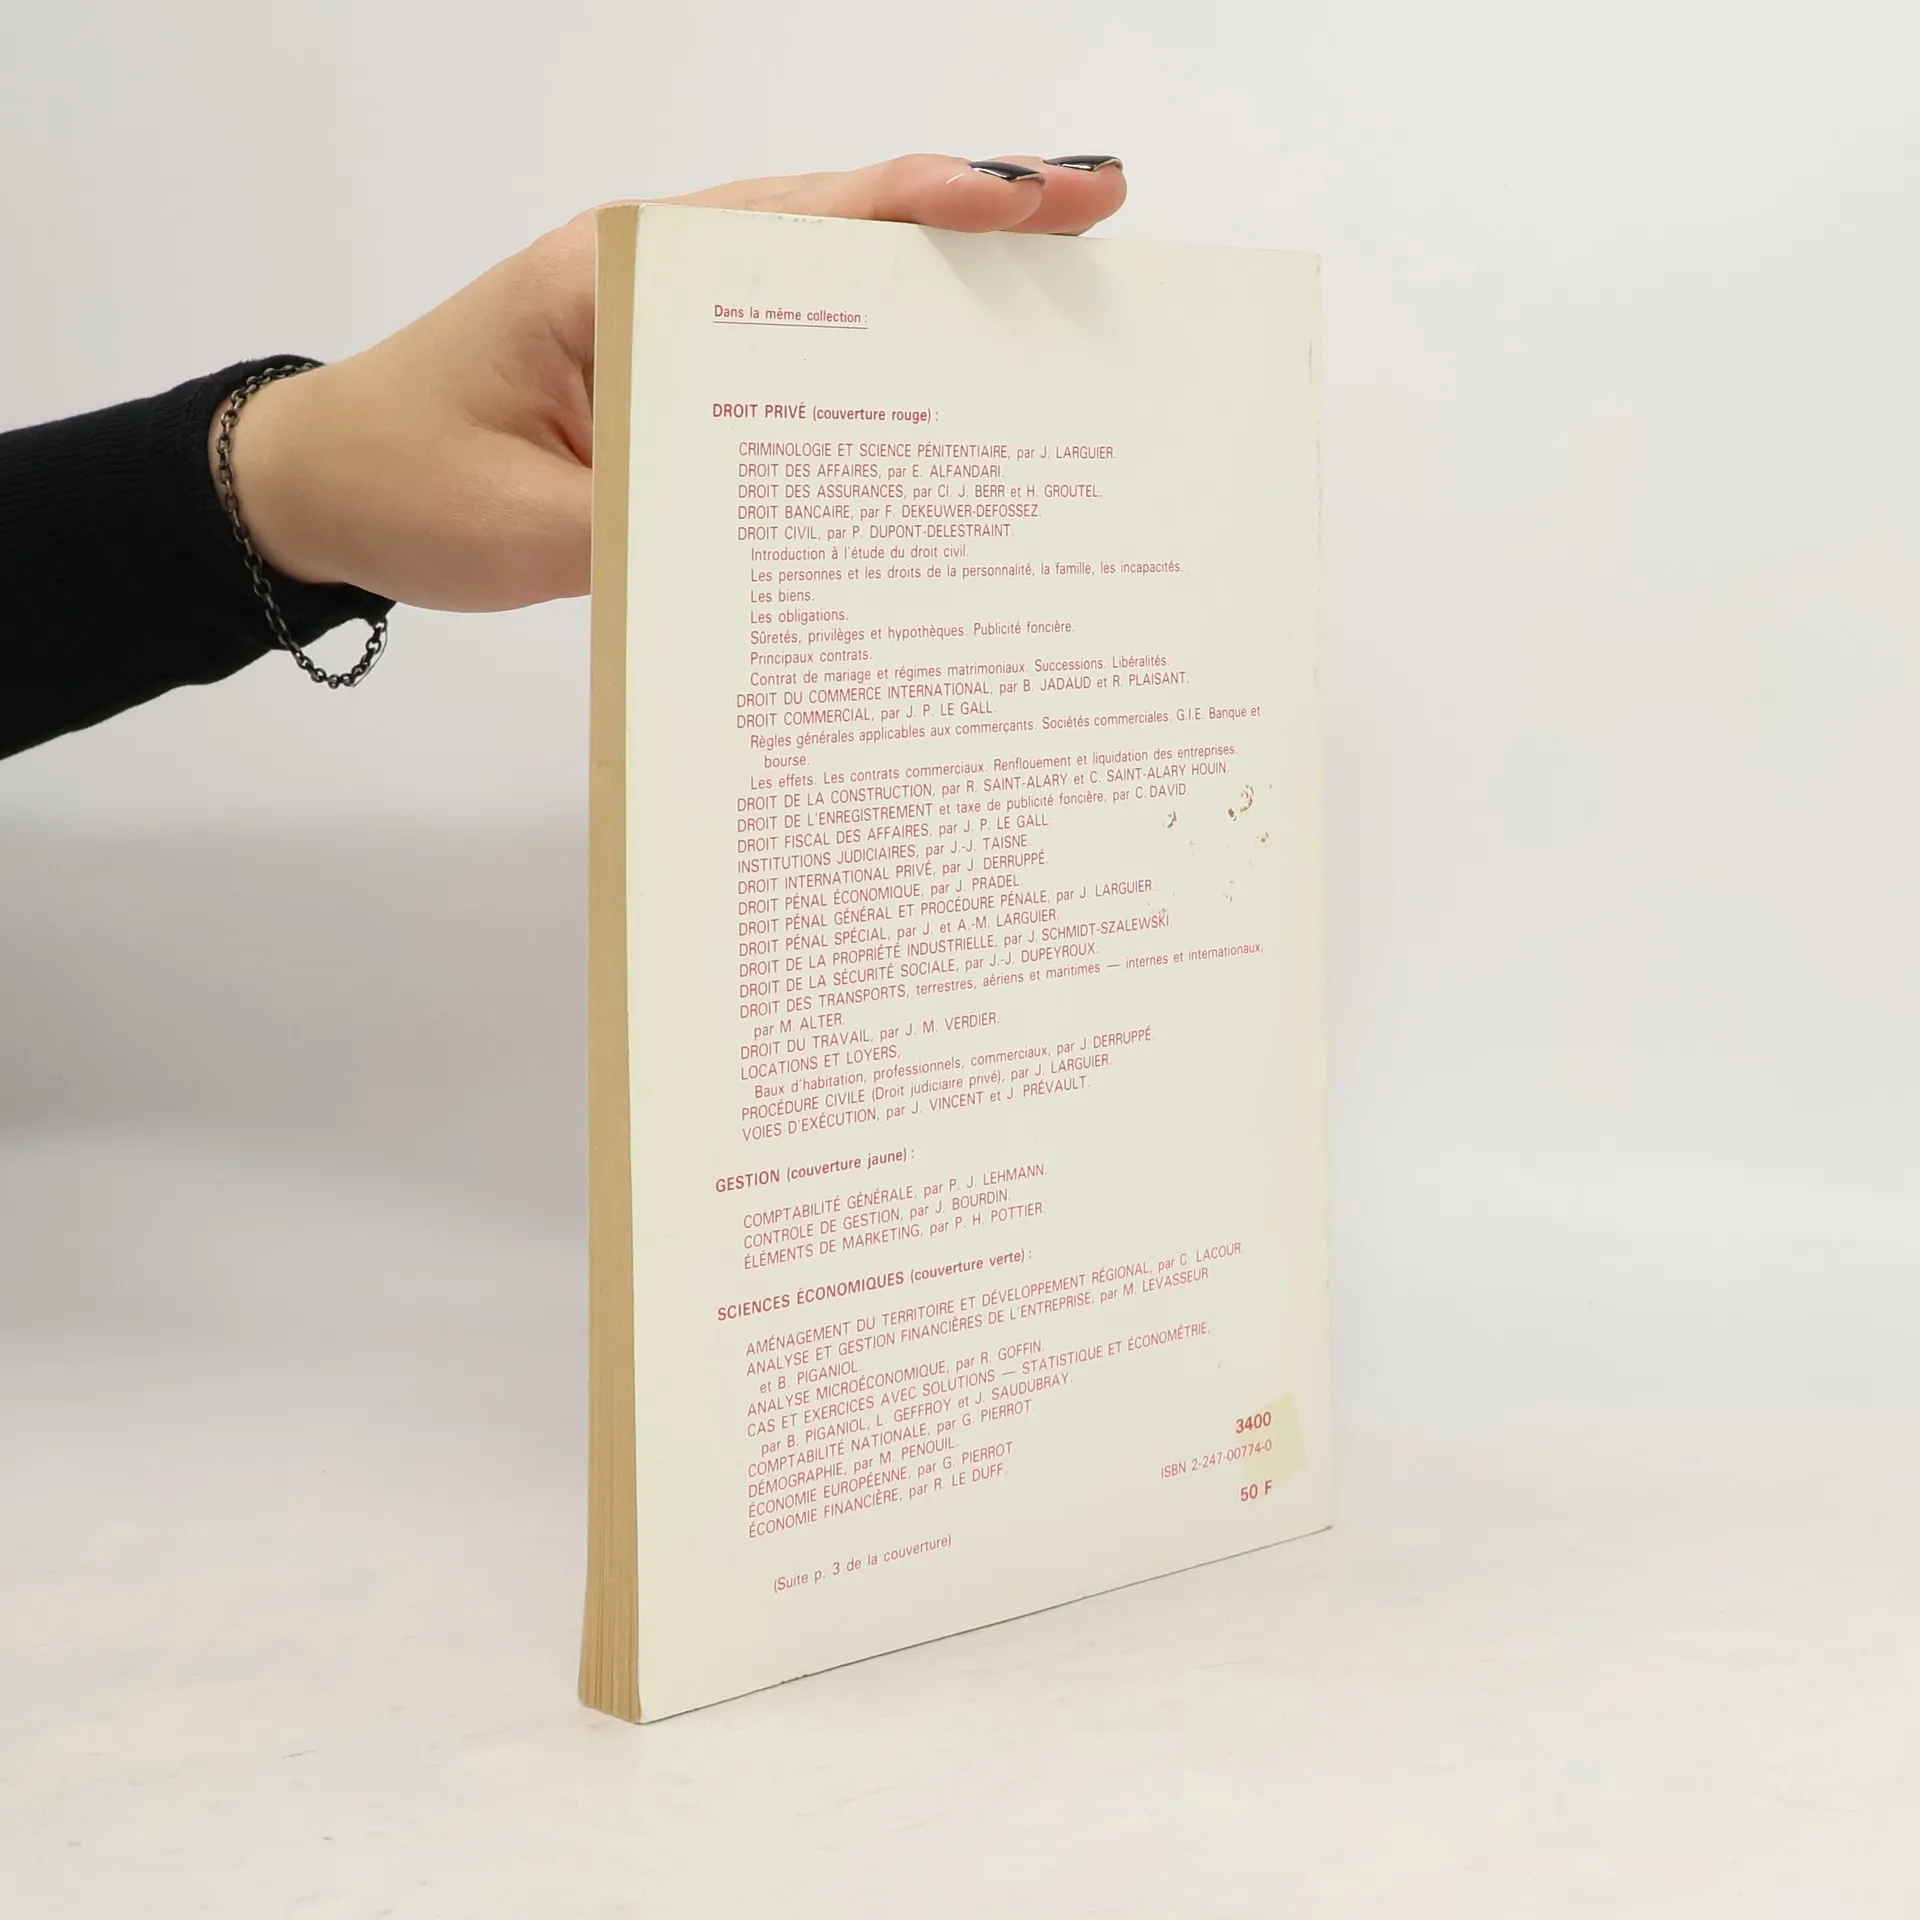 Dans la même collection :
DROIT PRIVÉ (couverture rouge) :
CRIMINOLOGIE ET SCIENCE PÉNITENTIAIRE, par J. LARGUIER.
DROIT DES AFFAIRES, par E. ALFANDARI.
DROIT DES ASSURANCES, par Cl. J. BERR et H. GROUTEL.
DROIT BANCAIRE, par F. DEKEUWER-DEFOSSEZ.
DROIT CIVIL, par P. DUPONT-DELESTRAINT.
Introduction à l'étude du droit civil.
Les personnes et les droits de la personnalité, la famille, les incapacités.
Les biens.
Les obligations.
Sûretés, privilèges et hypothèques. Publicité foncière.
Principaux contrats.
Contrat de mariage et régimes matrimoniaux. Successions. Libéralités.
DROIT DU COMMERCE INTERNATIONAL, par B. JADAUD et R. PLAISANT.
DROIT COMMERCIAL, par J. P. LE GALL.
Règles générales applicables aux commerçants. Sociétés commerciales. G.I.E. Banque et
bourse.
Les effets. Les contrats commerciaux. Renflouement et liquidation des entreprises.
DROIT DE LA CONSTRUCTION, par R. SAINT-ALARY et C. SAINT-ALARY HOUIN.
DROIT DE L'ENREGISTREMENT et taxe de publicité foncière, par C. DAVID.
DROIT FISCAL DES AFFAIRES, par J. P. LE GALL.
INSTITUTIONS JUDICIAIRES, par J.-J. TAISNE.
DROIT INTERNATIONAL PRIVÉ, par J. DERRUPPÉ.
DROIT PÉNAL ÉCONOMIQUE, par J. PRADEL.
DROIT PÉNAL GÉNÉRAL ET PROCÉDURE PÉNALE, par J. LARGUIER.
DROIT PÉNAL SPÉCIAL, par J. et A.-M. LARGUIER.
DROIT DE LA PROPRIÉTÉ INDUSTRIELLE, par J. SCHMIDT-SZALEWSKI.
DROIT DE LA SÉCURITÉ SOCIALE, par J.-J. DUPEYROUX.
DROIT DES TRANSPORTS, terrestres, aériens et maritimes — internes et internationaux,
par M. ALTER.
DROIT DU TRAVAIL, par J. M. VERDIER.
LOCATIONS ET LOYERS,
Baux d'habitation, professionnels, commerciaux, par J. DERRUPPÉ.
PROCÉDURE CIVILE (Droit judiciaire privé), par J. LARGUIER.
VOIES D'EXÉCUTION, par J. VINCENT et J. PRÉVAULT.
GESTION (couverture jaune) :
COMPTABILITÉ GÉNÉRALE, par P. J. LEHMANN.
CONTROLE DE GESTION, par J. BOURDIN.
ÉLÉMENTS DE MARKETING, par P. H. POTTIER.
SCIENCES ÉCONOMIQUES (couverture verte) :
AMÉNAGEMENT DU TERRITOIRE ET DÉVELOPPEMENT RÉGIONAL, par C. LACOUR.
ANALYSE ET GESTION FINANCIÈRES DE L'ENTREPRISE, par M. LEVASSEUR
et B. PIGANIOL.
ANALYSE MICROÉCONOMIQUE, par R. GOFFIN.
CAS ET EXERCICES AVEC SOLUTIONS — STATISTIQUE ET ÉCONOMÉTRIE,
par B. PIGANIOL, L. GEFFROY et J. SAUDUBRAY.
COMPTABILITÉ NATIONALE, par G. PIERROT.
DÉMOGRAPHIE, par M. PENOUIL.
ÉCONOMIE EUROPÉENNE, par G. PIERROT.
ÉCONOMIE FINANCIÈRE, par R. LE DUFF.
(Suite p. 3 de la couverture)
3400
ISBN 2-247-00774-0
50 F